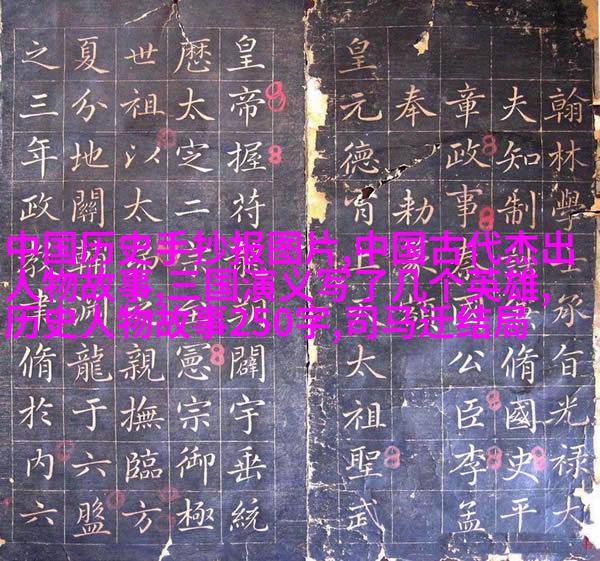 中国历史手抄报图片,中国古代杰出
人物故事,三国演义写了几个英雄,
历史人物故事250字,司马迁结局
翰林學士承旨光祿大
夫知制脩國史平
章政事國公臣李孟
奉勅
皇元德太祖聖武
皇帝握符闢宇垂統
歷太定二憲宗御極
世祖以太親撫臨方
夏分地關龍于六盤
之三年政脩於內六